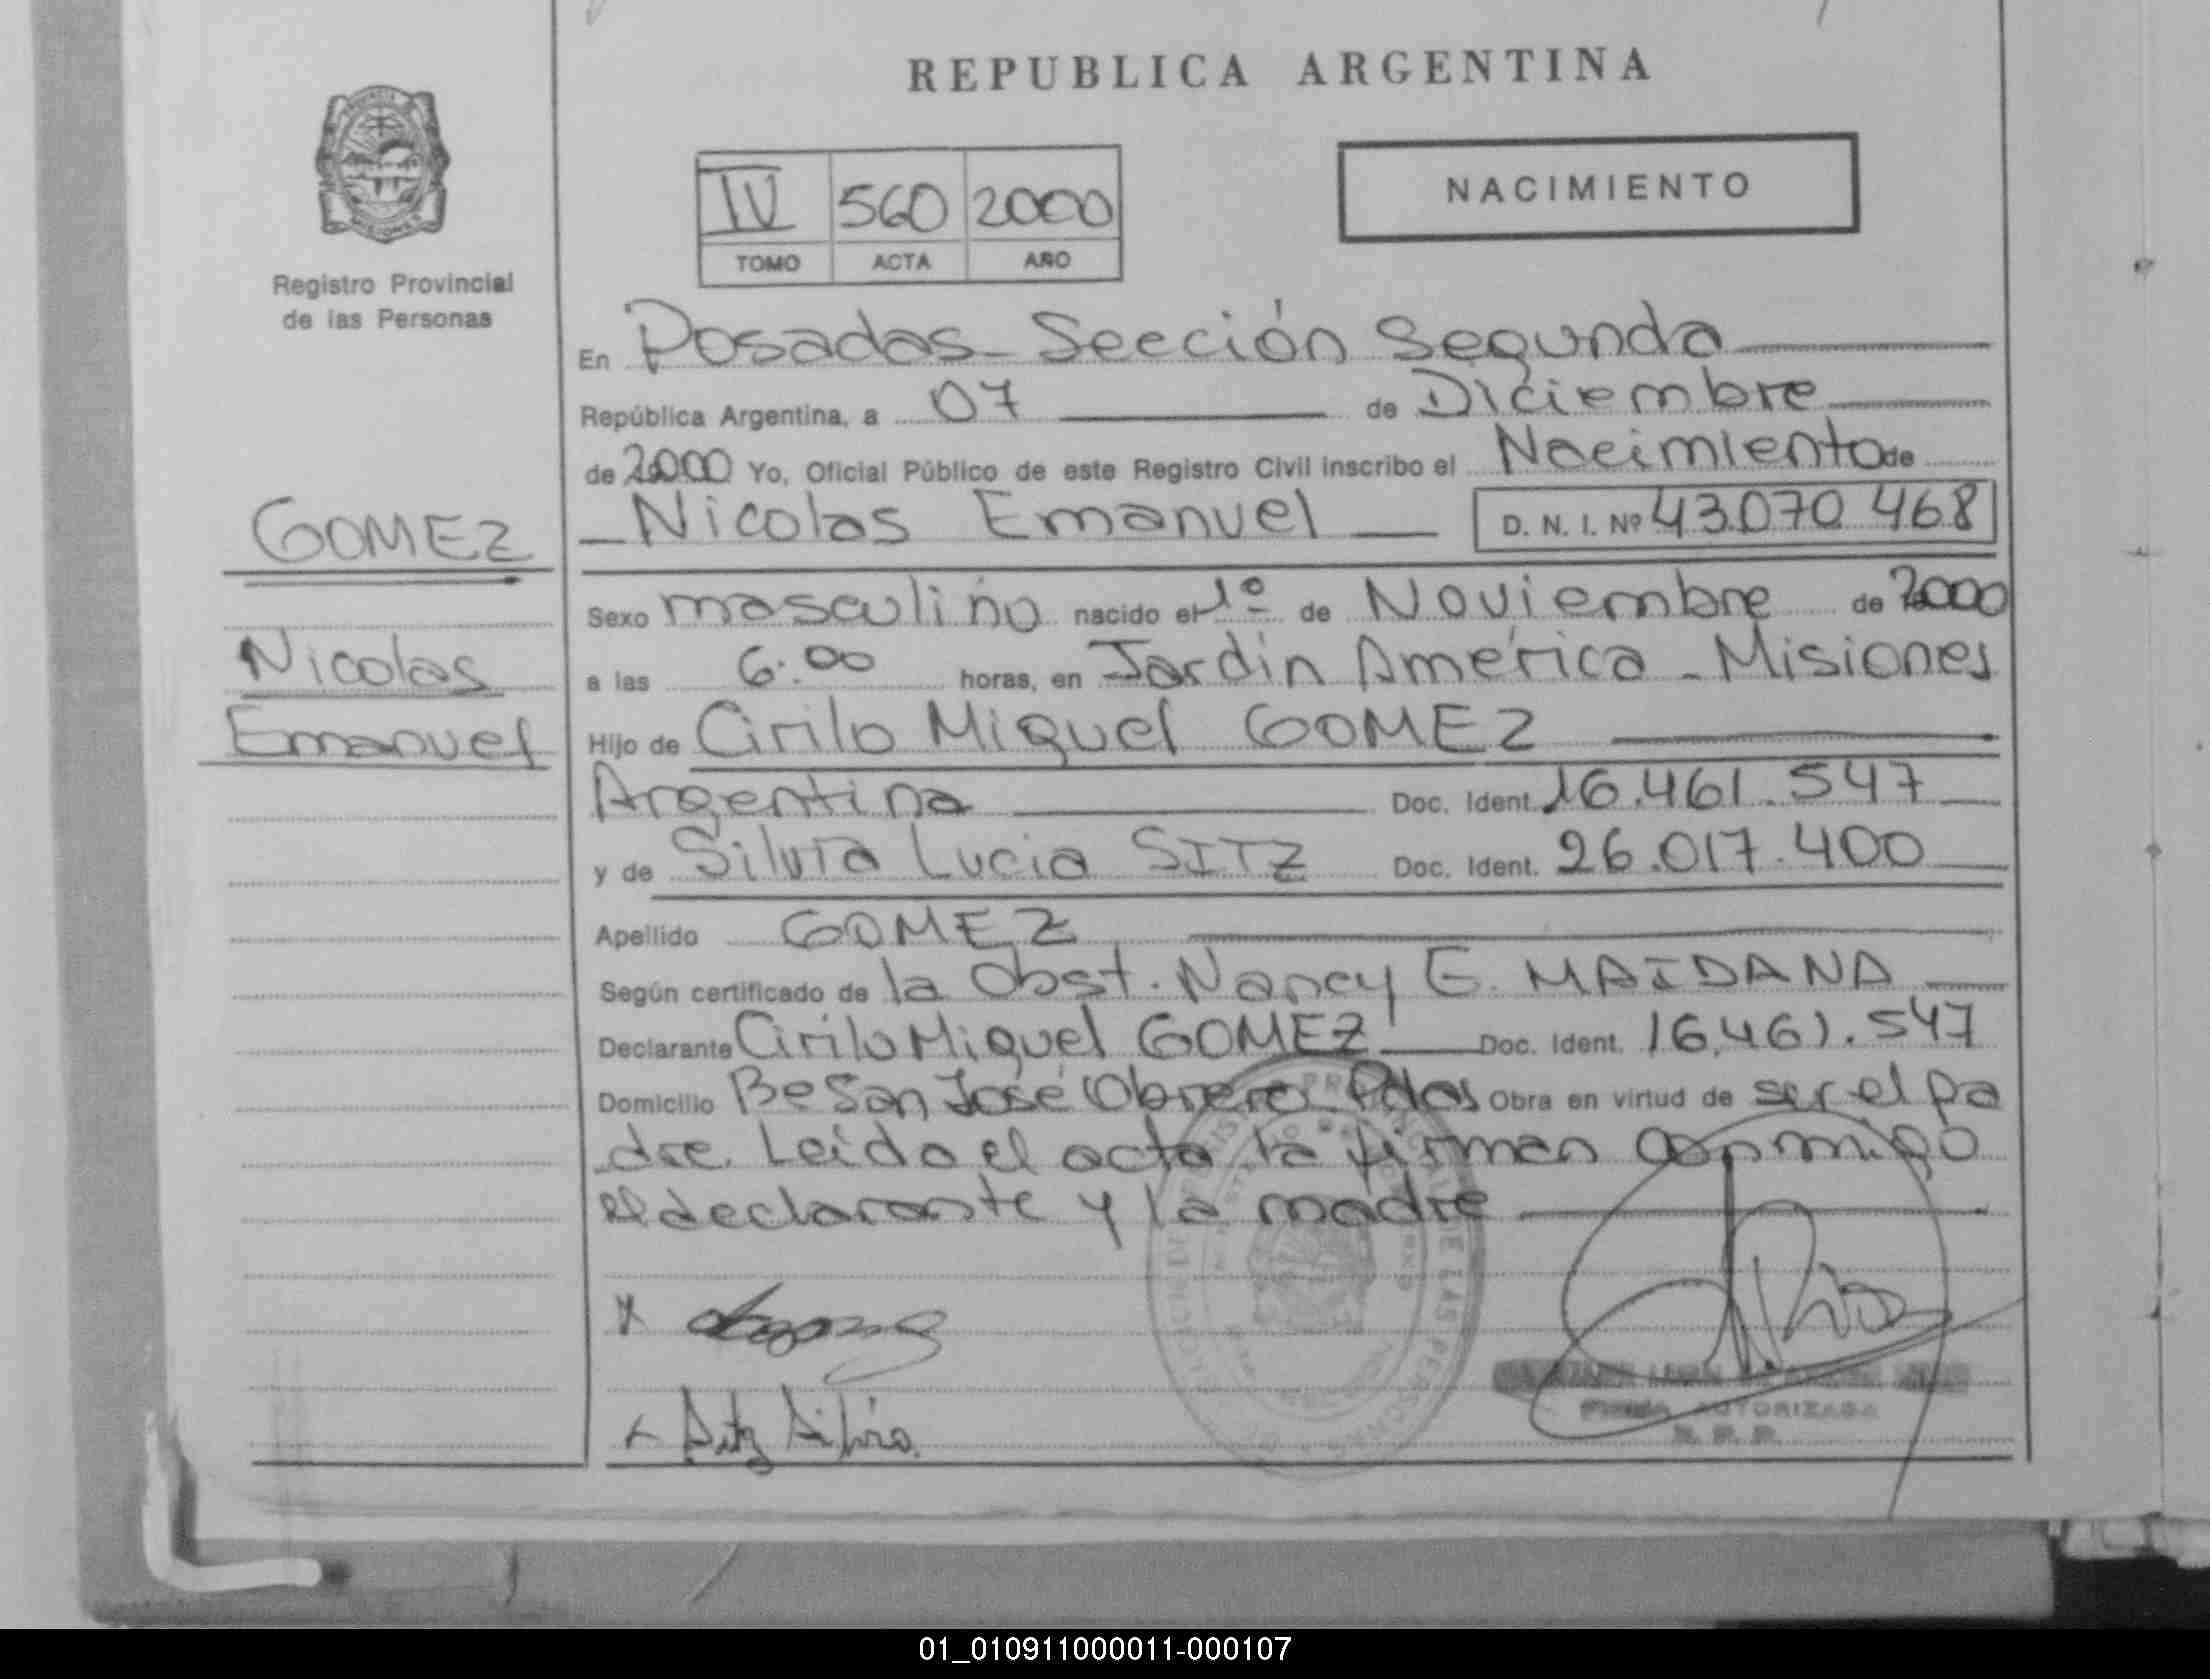 REPUBLICA ARGENTINA
NACIMIENTO
IV 560 2000
TOMO ACTA AÑO
Registro Provincial
de las Personas
GOMEZ
Nicolas
Emanuel
En Posadas - Sección Segunda
República Argentina, a 07 de Diciembre
de 2000 Yo, Oficial Público de este Registro Civil inscribo el Nacimiento de
Nicolas Emanuel D. N. I. Nº 43.070 468
Sexo masculino nacido el 1º de Noviembre de 2000
a las 6:00 horas, en Jardín América - Misiones
Hijo de Cirilo Miguel GOMEZ
Argentina Doc. Ident. 16.461.547
y de Silvia Lucia SITZ Doc. Ident. 26.017.400
Apellido GOMEZ
Según certificado de la Obst. Nancy E. MAIDANA
Declarante Cirilo Miguel GOMEZ Doc. Ident. 16.461.547
Domicilio Bº San José Obrero Pdas Obra en virtud de ser el pa
dre. Leido el acta la firman conmigo
el declarante y la madre
Sitz Silvia
FIRMA AUTORIZADA
R. P. P.
01_010911000011-000107